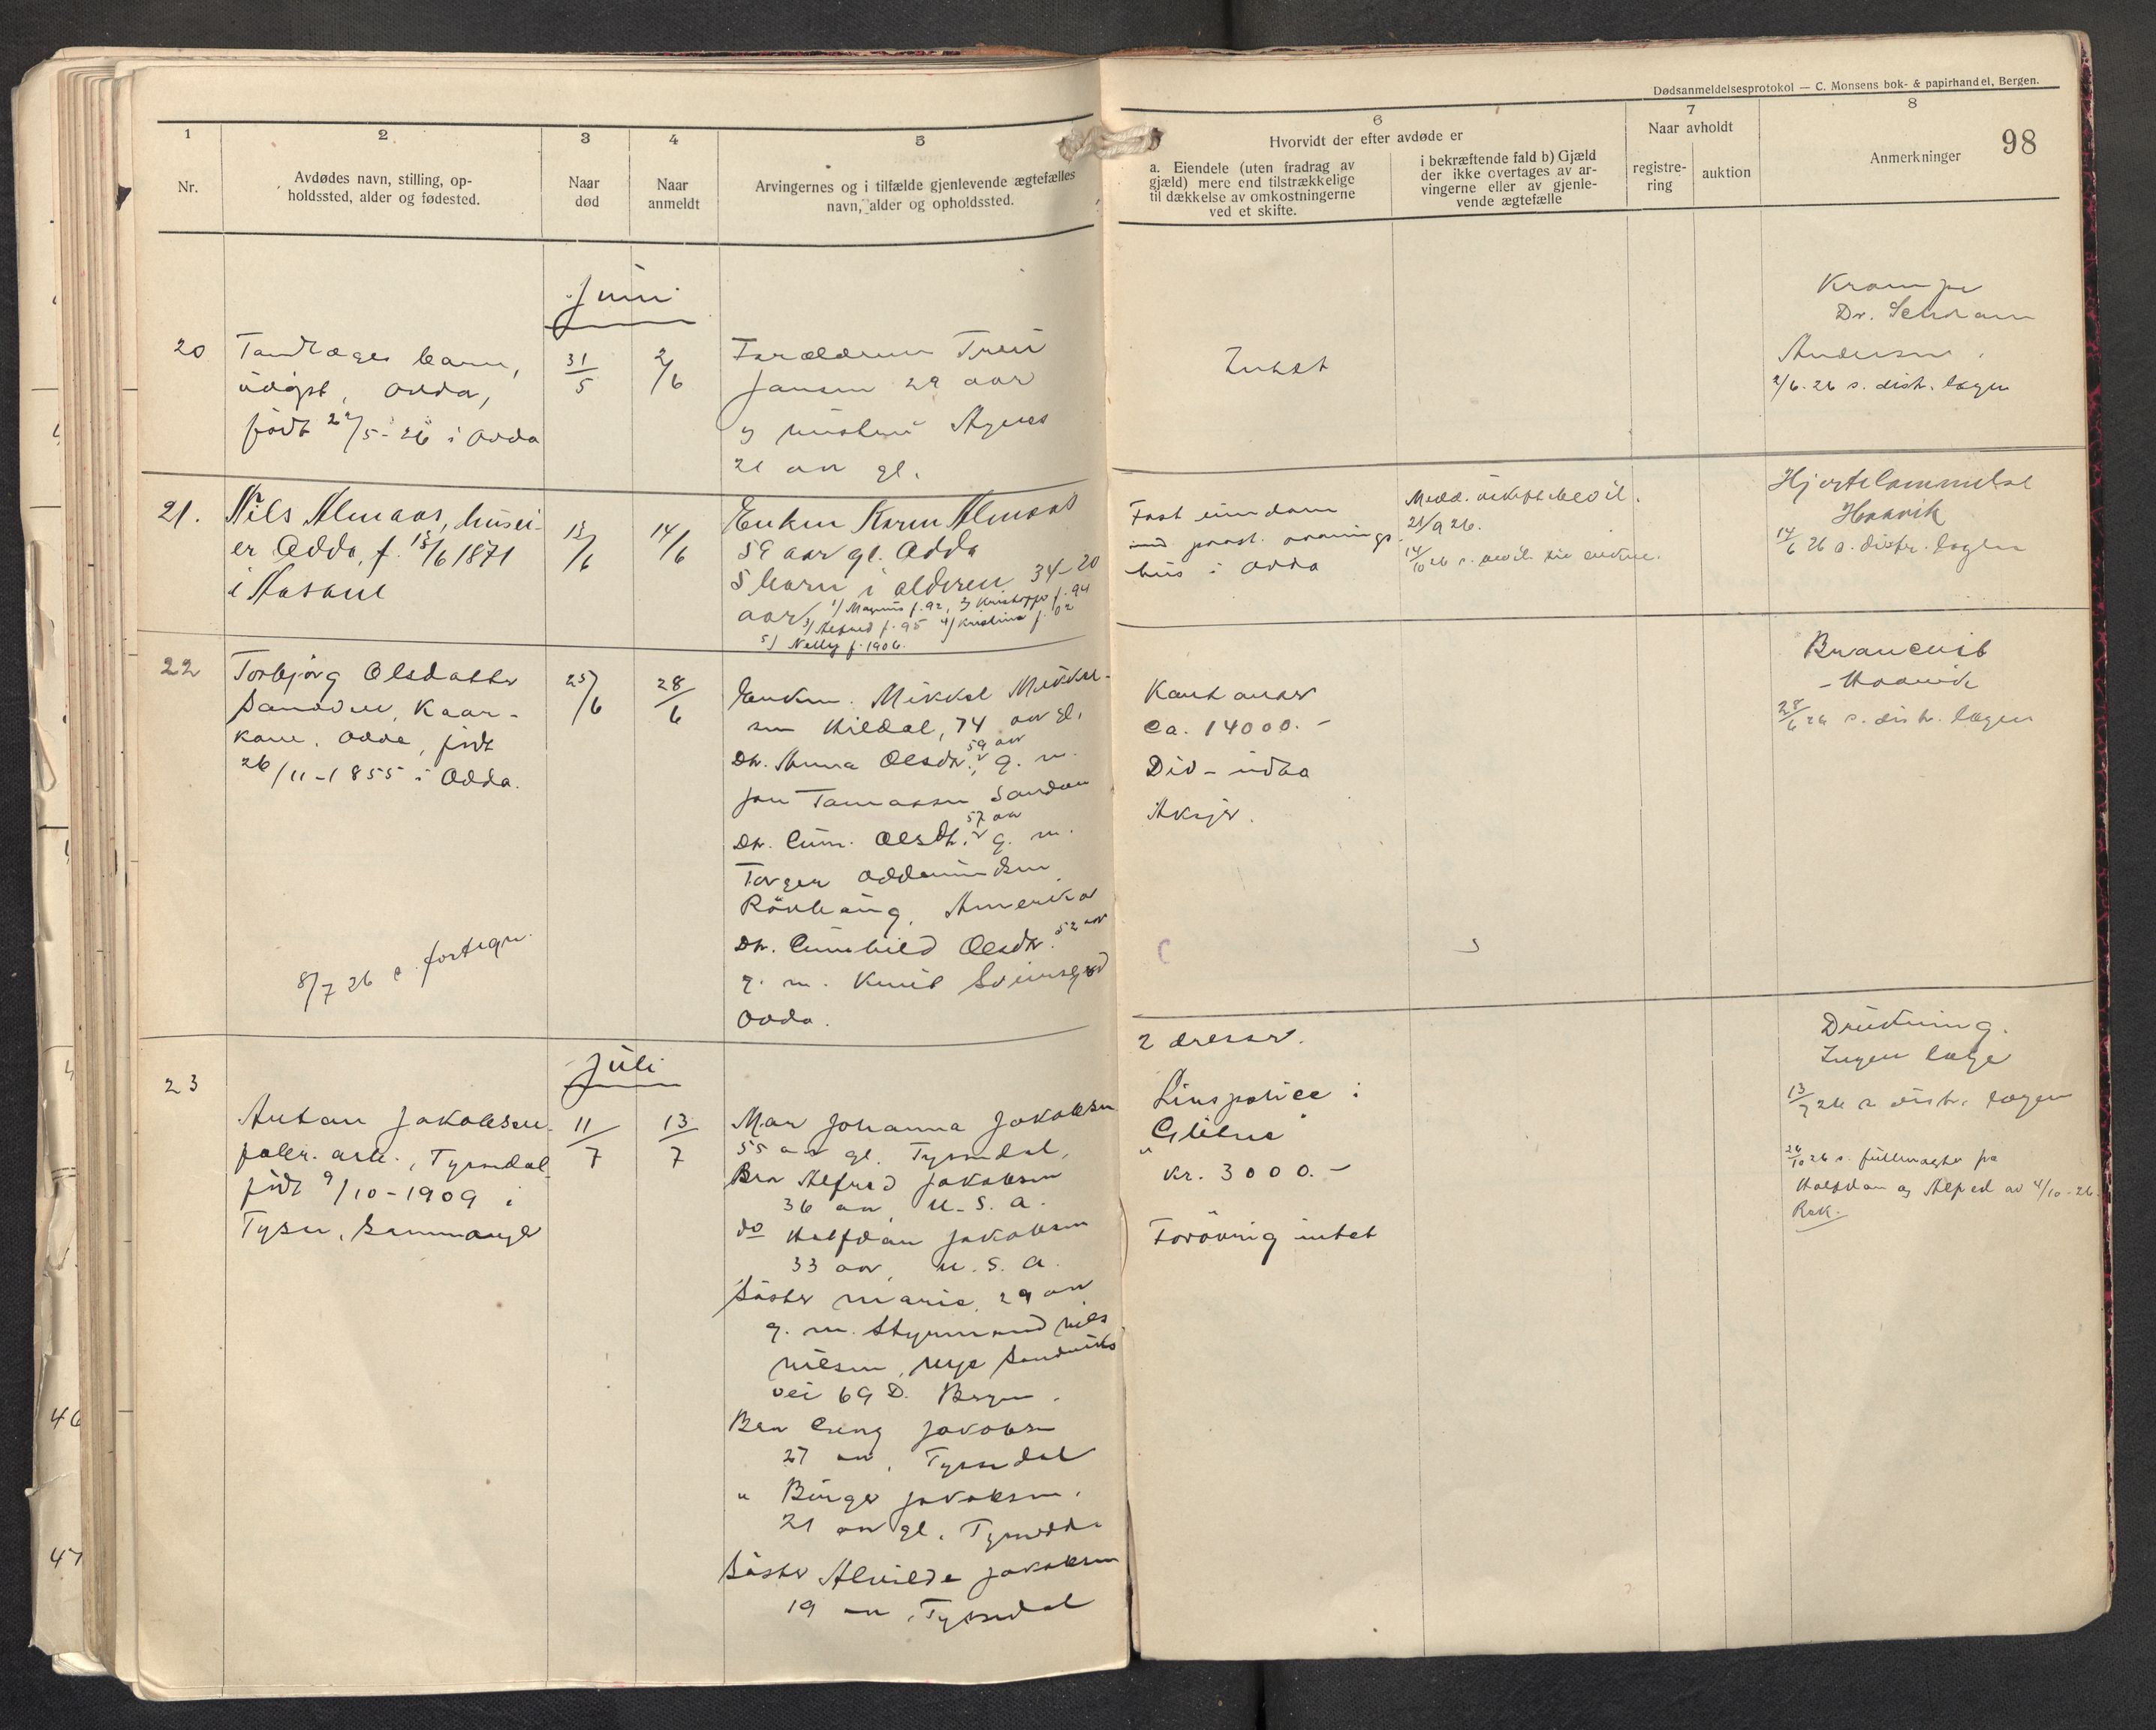 Dødsanmeldelsesprotokol — C. Monsens bok- & papirhandel, Bergen.
98
1
Nr.
2
Avdødes navn, stilling, op-
holdssted, alder og fødested.
3
Naar
død
4
Naar
anmeldt
5
Arvingernes og i tilfælde gjenlevende ægtefælles
navn, alder og opholdssted.
6
Hvorvidt der efter avdøde er
a. Eiendele (uten fradrag av
gjæld) mere end tilstrækkelige
til dækkelse av omkostningerne
ved et skifte.
i bekræftende fald b) Gjæld
der ikke overtages av ar-
vingerne eller av gjenle-
vende ægtefælle
7
Naar avholdt
registre-
ring
auktion
8
Anmerkninger
Juni
20
barn,
udøpt, Odda,
født 22/5-26 i Odda
31/5
2/6
Forældrene
Jansen 29 aar
og hustru Agnes
21 aar gl.
Intet
Krampe
Dr.
Andersen
2/6-26 s. distr. lægen
21.
Nils Almaas, husei-
er Odda, f. 15/6 1871
i Aasane
13/6
14/6
Enken Karen Almaas
59 aar gl. Odda
5 barn i alderen 34-20
aar 1) Magnus f. 92, 2) f. 94
3) Alfred f. 95 4) Kristina f. 02
5) Nelly f. 1906.
Fast eiendom
med paast. vaanings-
hus i Odda
Medd. uskiftebevil.
21/9 26.
14/10 26 s. bevil. til enken.
Hjertelammelse
Haavik
14/6 26 s. distr. lægen
22
Torbjørg Olsdatter
Sandven, Kaar-
kone, Odda, født
26/11-1855 i Odda.
8/7 26 s. fortegn.
25/6
28/6
Enkem. Mikkel Mikkel-
sen Hildal, 74 aar gl.
Dtr. Anna Olsdtr. 59 aar g. m.
Jon Tomassen Sandven
Dtr. Olsdtr. 57 aar g. m.
Torger Oddmundsen
Amerika
Dtr. Gunhild Olsdtr. 52 aar
g. m. Knut
Odda.
Kontanter
ca. 14000.-
Div-
Aksjer.
Brandvib
Haavik
28/6 26 s. distr. lægen
Juli
23
Anton Jakobsen
fabr. arb., Tyssedal
født 9/10-1909 i
Tysse, Sammanger
11/7
13/7
Mor Johanna Jakobsen
55 aar gl. Tyssedal,
Bror Alfred Jakobsen
36 aar, U.S.A.
do Halfdan Jakobsen
33 aar, U.S.A.
Søster Marie, 29 aar
g. m. Styrmand Nils
Nilsen, Nye Sandviks
vei 69 D. Bergen.
Bror Jakobsen
27 aar, Tyssedal
" Birger Jakobsen,
21 aar gl. Tyssedal
Søster Alvilde Jakobsen
19 aar, Tyssedal
2 dresser.
Livspolice i
"Gjensidige"
kr. 3000.-
Forøvrig intet
Drukning.
Ingen læge
13/7 26 s. distr. lægen
26/10 26 s. fullmagter fra
Halfdan og Alfred av 4/10-26.
Rek.
46
47